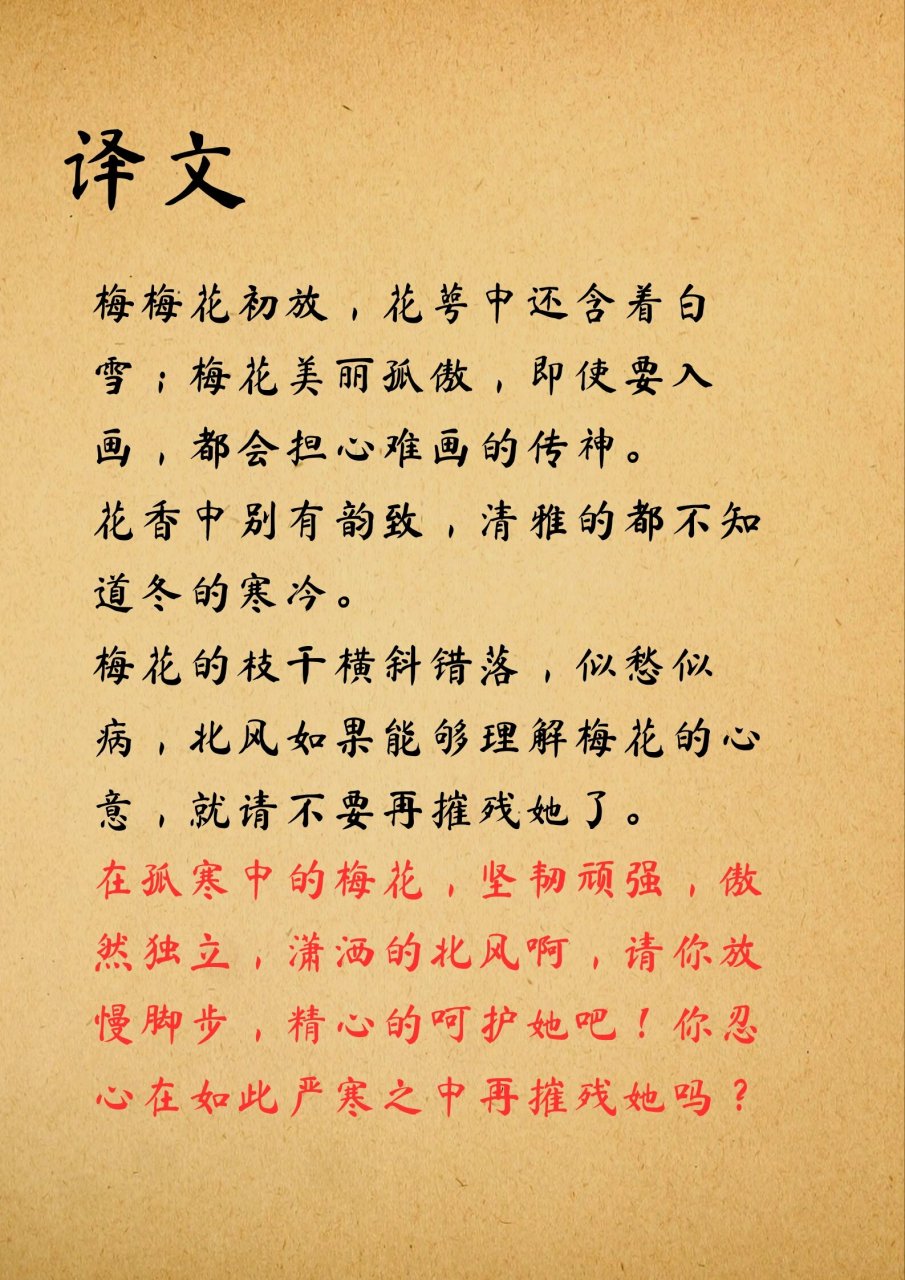 译文
梅梅花初放，花萼中还含着白
雪；梅花美丽孤傲，即使要入
画，都会担心难画的传神。
花香中别有韵致，清雅的都不知
道冬的寒冷。
梅花的枝干横斜错落，似愁似
病，北风如果能够理解梅花的心
意，就请不要再摧残她了。
在孤寒中的梅花，坚韧顽强，傲
然独立，潇洒的北风啊，请你放
慢脚步，精心的呵护她吧！你忍
心在如此严寒之中再摧残她吗？